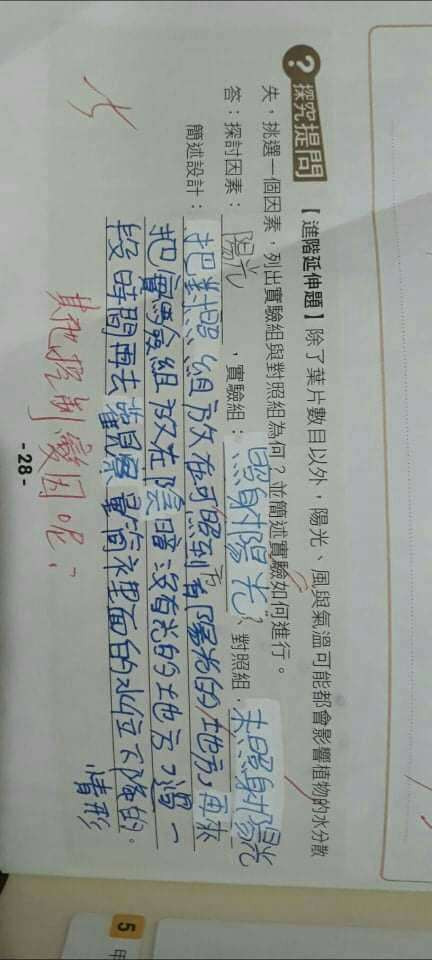 ? 探究提問
【進階延伸題】除了葉片數目以外，陽光、風與氣溫可能都會影響植物的水分散
失，挑選一個因素，列出實驗組與對照組為何？並簡述實驗如何進行。
答：探討因素：陽光，實驗組：照射陽光，對照組：未照射陽光
簡述設計：把對照組放在可照到有陽光的地方，再來
把實驗組放在陰暗沒有光的地方，過一
段時間再去觀察量筒裡面的水位下降的情形.
其他控制變因呢？
-28-
5